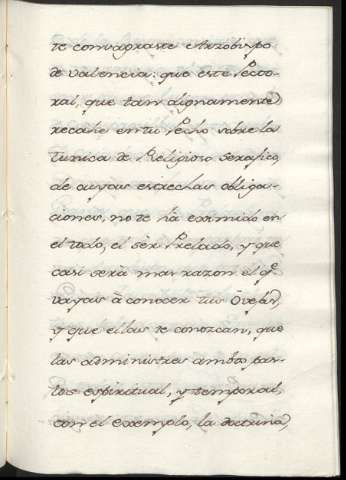 te consagraste Arzobispo
de Valencia: que este Pecto-
ral, que tan dignamente
recahe en tu Pecho sobre la
tunica de Religioso serafico,
de cuyas estrechas obliga-
ciones, no te ha eximido en
el todo, el sèr Prelado, y que
casi serà mas razon el qe.
vayas à conocer tus Ovejas,
y que ellas te conozcan, que
las administres ambos pas-
tos espiritual, y temporal,
con el exemplo, la doctrina,